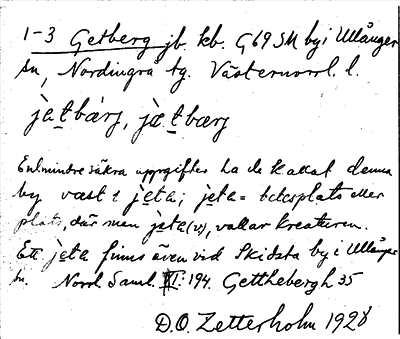 1-3 Getberg jb. kb. G 69 SM by i Ullånger
sn, Nordingrå tg. Västernorrl. l.
jetbärj, jætbærj
Enl. mindre säkra uppgifter ha de kallat denna
by væst i jeta; jeta = betesplats eller
plats, där man jeta(r), vallar kreaturen.
Ett jeta finns även vid Skidsta by i Ullånger
sn. Norrl. Saml. : 194. Getthebergh 35
D.O. Zetterholm 1928